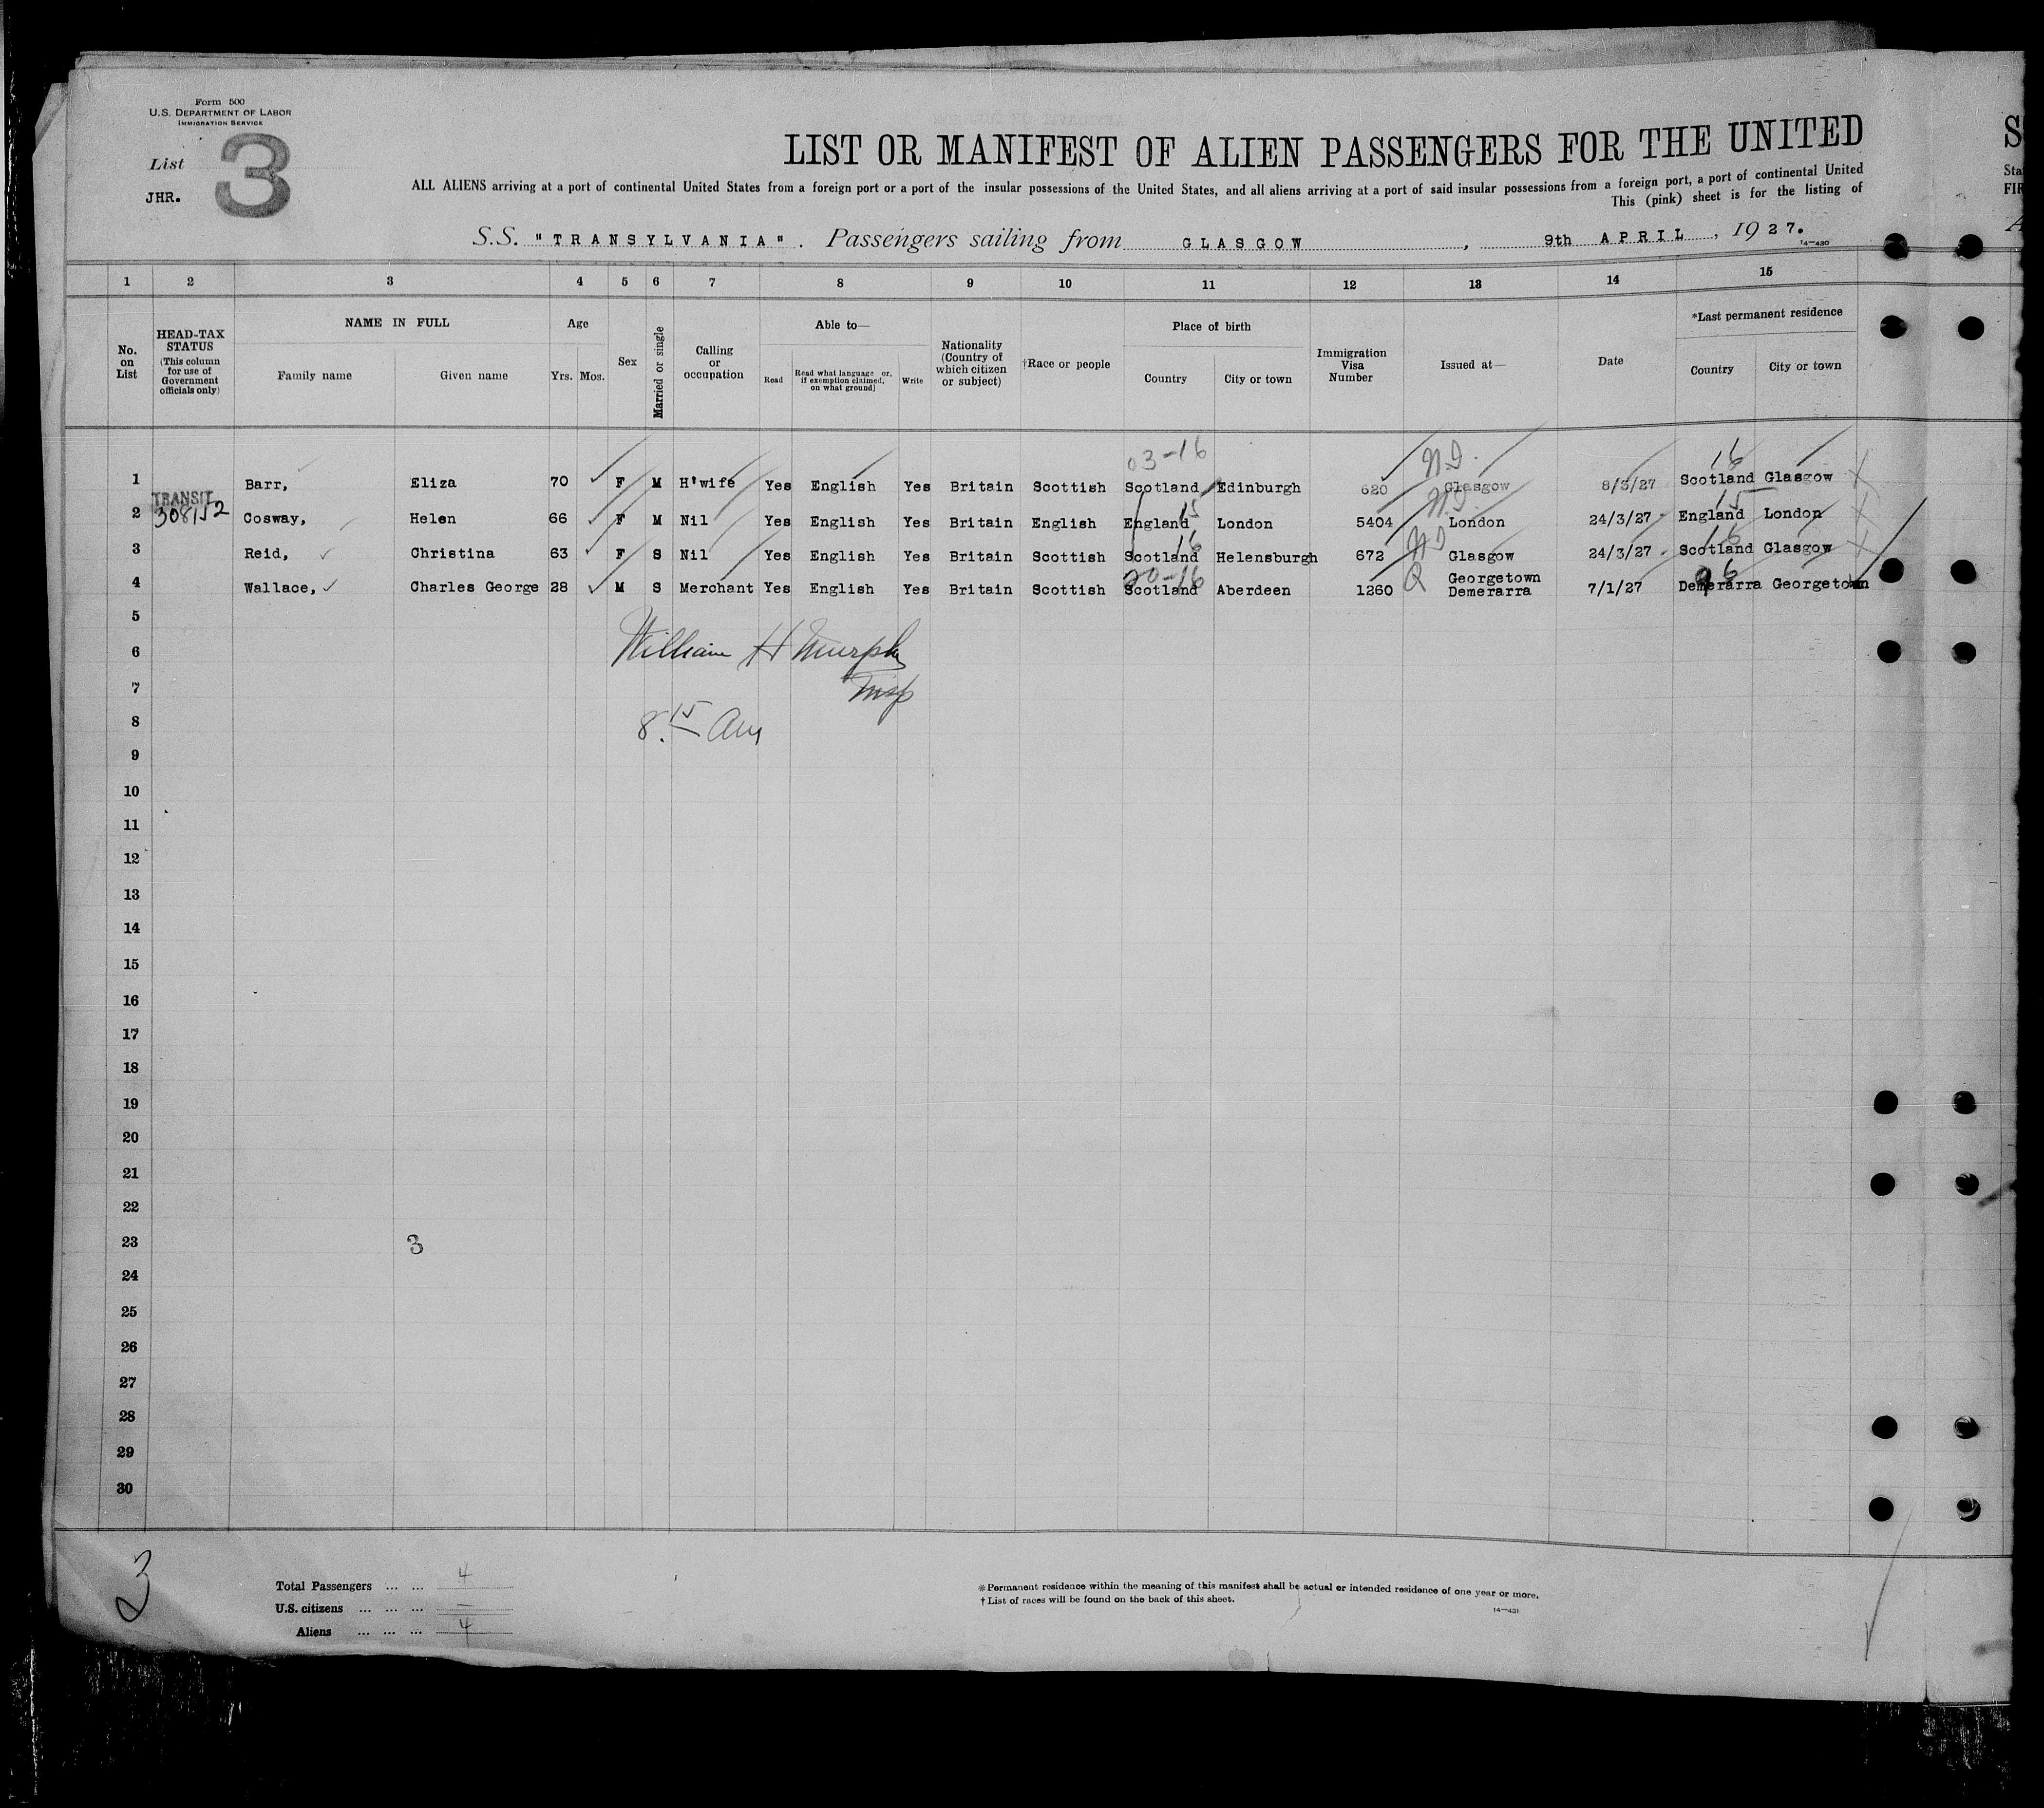 Form 500
U.S. DEPARTMENT OF LABOR
IMMIGRATION SERVICE
List 3
JHR.
LIST OR MANIFEST OF ALIEN PASSENGERS FOR THE UNITED
ALL ALIENS arriving at a port of continental United States from a foreign port or a port of the insular possessions of the United States, and all aliens arriving at a port of said insular possessions from a foreign port, a port of continental United
This (pink) sheet is for the listing of
S.S. "TRANSYLVANIA". Passengers sailing from GLASGOW, 9th APRIL, 1927.
14-430
1 2 3 4 5 6 7 8 9 10 11 12 13 14 15
No. on List
HEAD-TAX STATUS (This column for use of Government officials only)
NAME IN FULL
Family name Given name
Age
Yrs. Mos.
Sex
Married or single
Calling or occupation
Able to—
Read
Read what language or, if exemption claimed, on what ground]
Write
Nationality (Country of which citizen or subject)
†Race or people
Place of birth
Country City or town
Immigration Visa Number
Issued at—
Date
*Last permanent residence
Country City or town
03-16 N.I. 16
1 Barr, Eliza 70 F M H'wife Yes English Yes Britain Scottish Scotland Edinburgh 620 Glasgow 8/3/27 Scotland Glasgow
TRANSIT 15 15
2 308152 Cosway, Helen 66 F M Nil Yes English Yes Britain English England London 5404 London 24/3/27 England London
16 16
3 Reid, Christina 63 F S Nil Yes English Yes Britain Scottish Scotland Helensburgh 672 Glasgow 24/3/27 Scotland Glasgow
20-16 Q
4 Wallace, Charles George 28 M S Merchant Yes English Yes Britain Scottish Scotland Aberdeen 1260 Georgetown Demerarra 7/1/27 Demerarra Georgetown
5
6 William H Murphy
7 Insp
8 8.15 Am
9
10
11
12
13
14
15
16
17
18
19
20
21
22
23 3
24
25
26
27
28
29
30
3
Total Passengers ... ... 4
U.S. citizens ... ... ... —
Aliens ... ... ... 4
* Permanent residence within the meaning of this manifest shall be actual or intended residence of one year or more.
† List of races will be found on the back of this sheet.
14-431